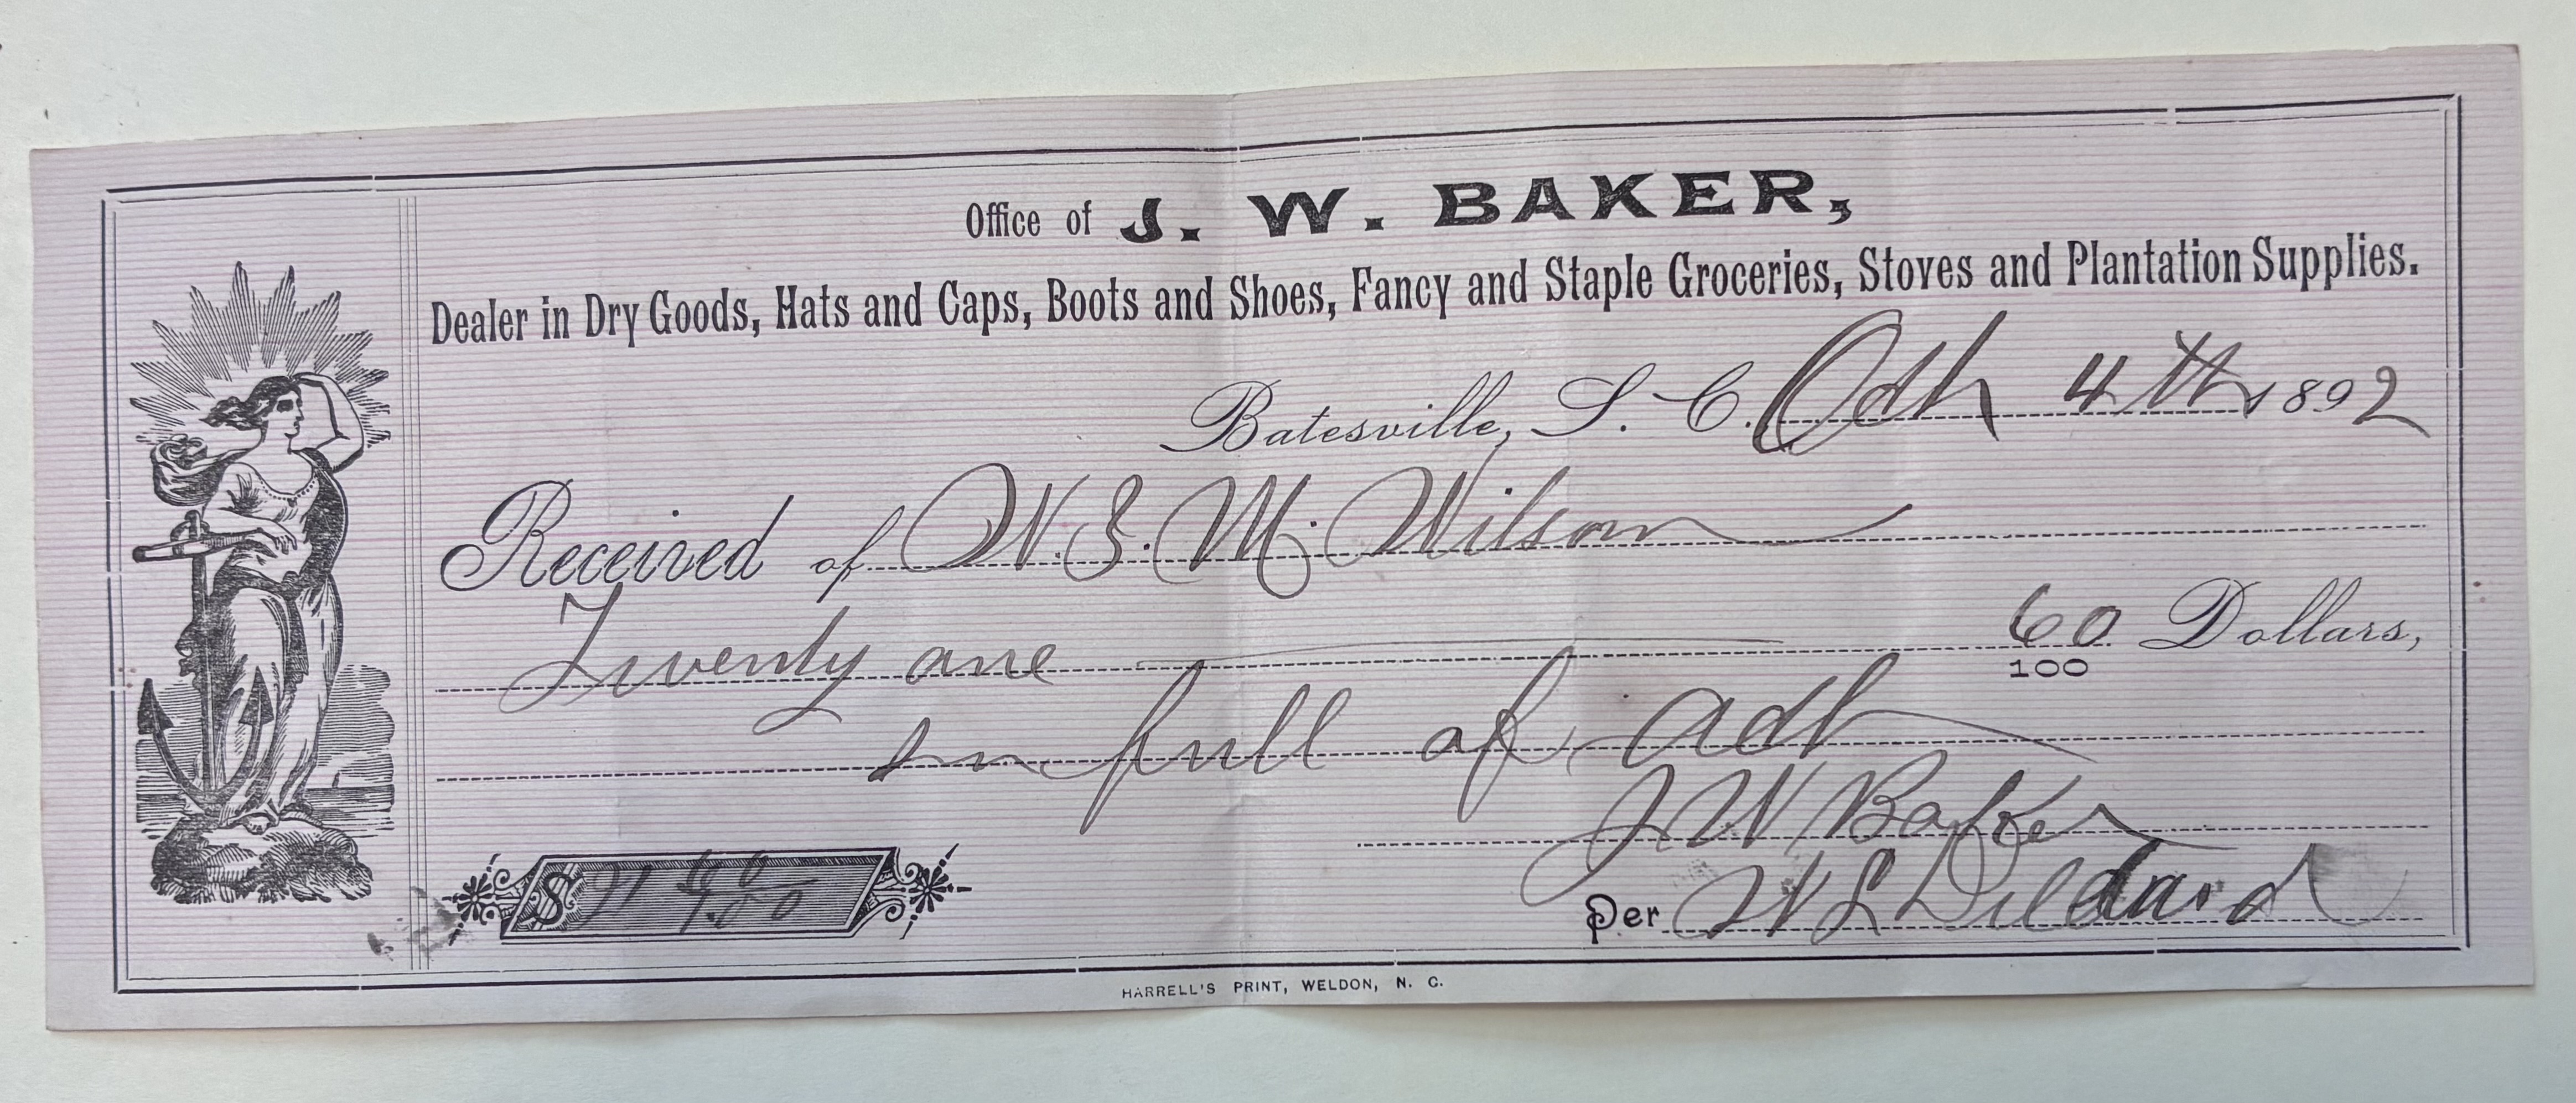 Office of J. W. BAKER,
Dealer in Dry Goods, Hats and Caps, Boots and Shoes, Fancy and Staple Groceries, Stoves and Plantation Supplies.
Batesville, S. C. 4th 1892
Received of W. S. M. Wilson
Twenty one 60/100 Dollars,
in full of
J W Baker
$ 21 60/100
Per W L Dillard
HARRELL'S PRINT, WELDON, N. C.